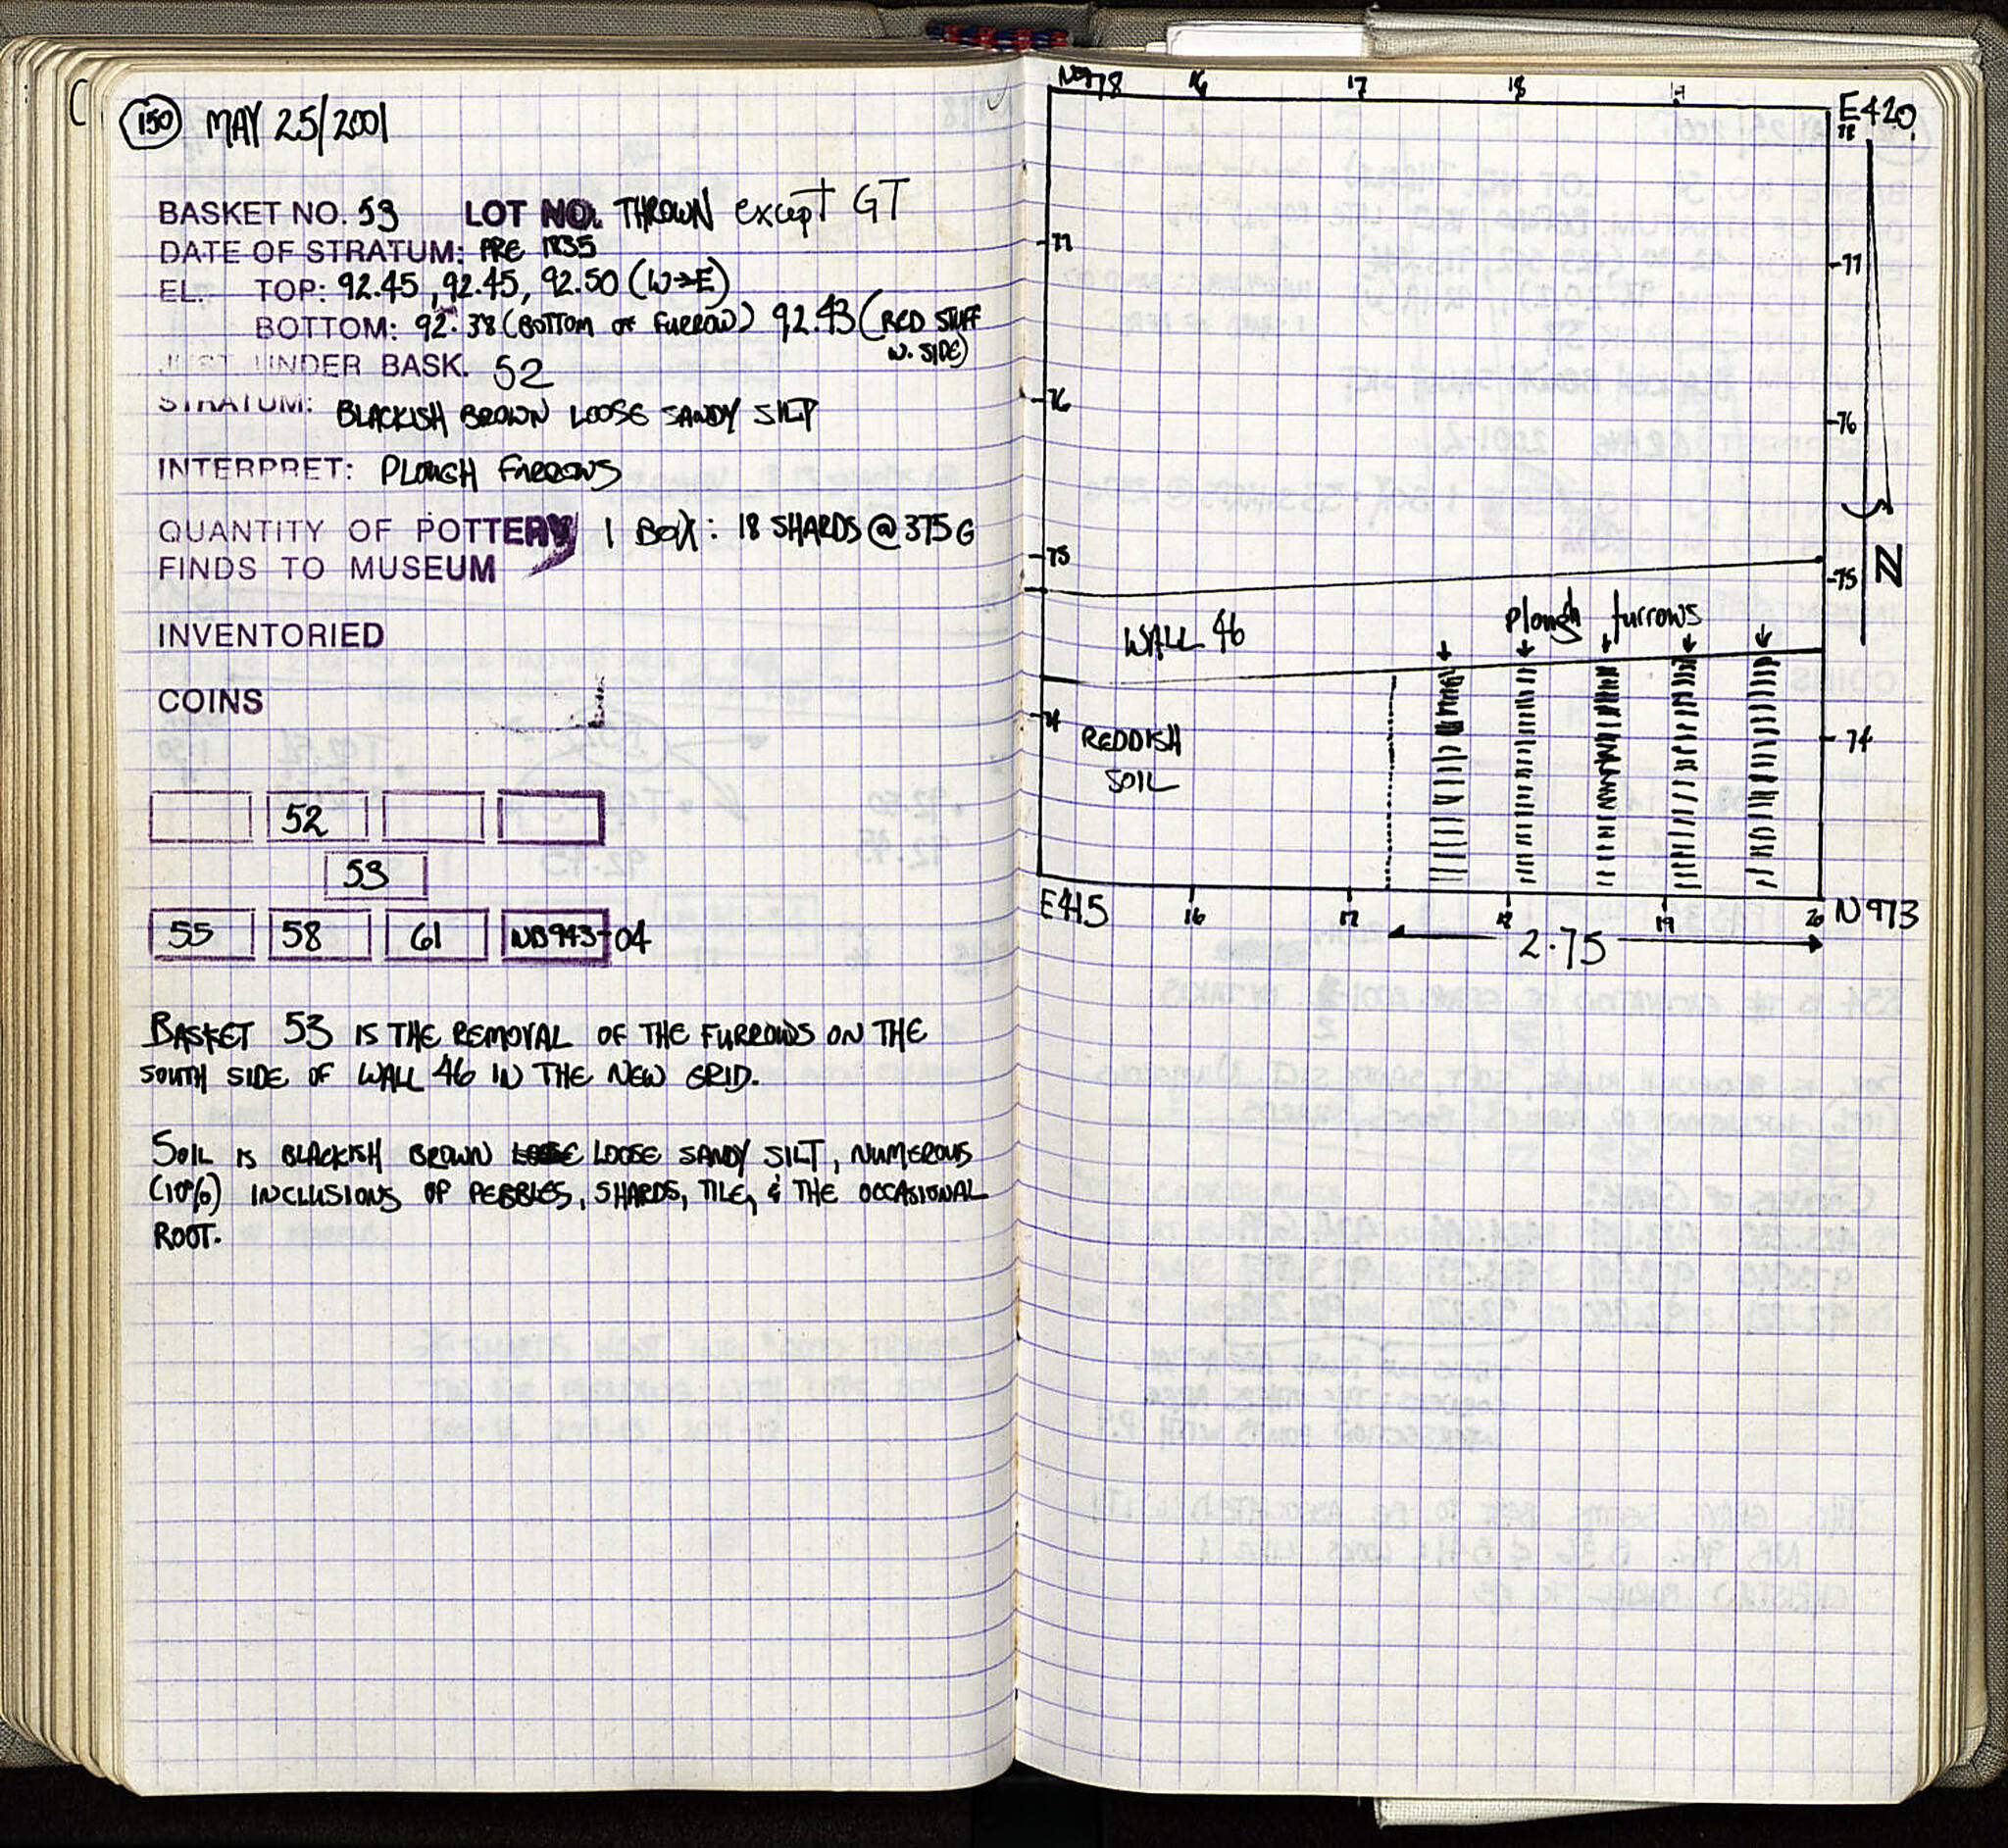 150 MAY 25/2001
BASKET NO. 53 LOT NO. THROWN except GT
DATE OF STRATUM: PRE 1835
EL. TOP: 92.45, 92.45, 92.50 (W→E)
BOTTOM: 92.38 (BOTTOM OF FURROW) 92.43 (RED STUFF
W. SIDE)
JUST UNDER BASK. 52
STRATUM: BLACKISH BROWN LOOSE SANDY SILT
INTERPRET: PLOUGH FURROWS
QUANTITY OF POTTERY 1 BOX: 18 SHARDS @ 375 G
FINDS TO MUSEUM
INVENTORIED
COINS
52
53
55 58 61 NB943-04
BASKET 53 IS THE REMOVAL OF THE FURROWS ON THE
SOUTH SIDE OF WALL 46 IN THE NEW GRID.
SOIL IS BLACKISH BROWN LOOSE SANDY SILT, NUMEROUS
(10%) INCLUSIONS OF PEBBLES, SHARDS, TILE, & THE OCCASIONAL
ROOT.
N978 16 17 18 19 E420
78
77 77
76 76
75 75
N
Plough furrows
WALL 46
74 74
REDDISH
SOIL
E415 16 17 18 19 20 N973
2.75